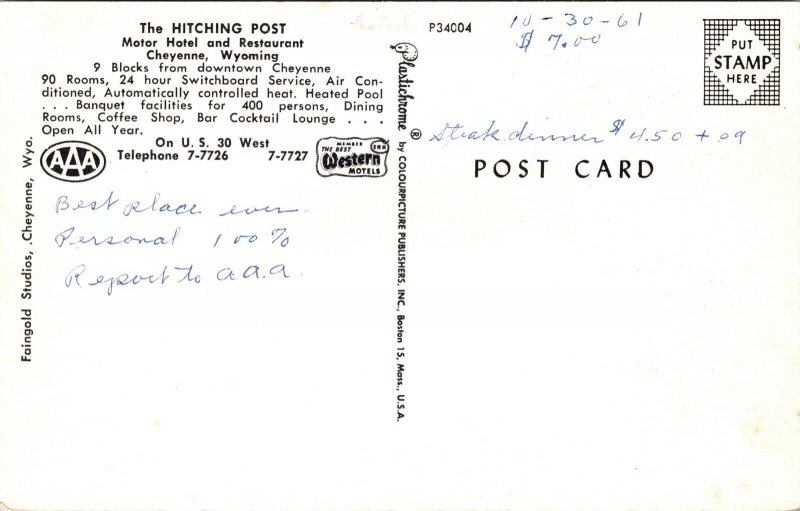 The HITCHING POST
Motor Hotel and Restaurant
Cheyenne, Wyoming
9 Blocks from downtown Cheyenne
90 Rooms, 24 hour Switchboard Service, Air Con-
ditioned, Automatically controlled heat. Heated Pool
. . . Banquet facilities for 400 persons, Dining
Rooms, Coffee Shop, Bar Cocktail Lounge . . .
Open All Year.
On U. S. 30 West
Telephone 7-7726 7-7727
AAA
MEMBER
THE BEST
Western
MOTELS
Best place ever.
Personal 100%
Report to a.a.a.
Faingold Studios, .Cheyenne, Wyo.
Plastichrome ® by COLOURPICTURE PUBLISHERS, INC., Boston 15, Mass., U.S.A.
P34004
10-30-61
$ 7.00
PUT
STAMP
HERE
Steak dinner $4.50 + 09
POST CARD